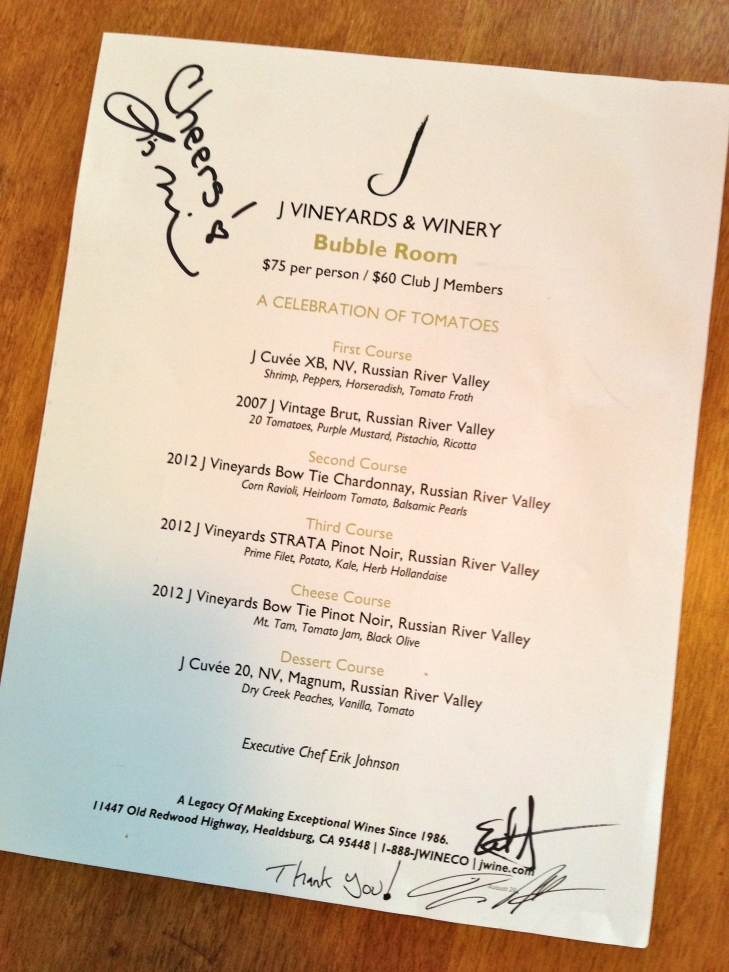 Cheers!
J
J VINEYARDS & WINERY
Bubble Room
$75 per person / $60 Club J Members
A CELEBRATION OF TOMATOES
First Course
J Cuvée XB, NV, Russian River Valley
Shrimp, Peppers, Horseradish, Tomato Froth
2007 J Vintage Brut, Russian River Valley
20 Tomatoes, Purple Mustard, Pistachio, Ricotta
Second Course
2012 J Vineyards Bow Tie Chardonnay, Russian River Valley
Corn Ravioli, Heirloom Tomato, Balsamic Pearls
Third Course
2012 J Vineyards STRATA Pinot Noir, Russian River Valley
Prime Filet, Potato, Kale, Herb Hollandaise
Cheese Course
2012 J Vineyards Bow Tie Pinot Noir, Russian River Valley
Mt. Tam, Tomato Jam, Black Olive
Dessert Course
J Cuvée 20, NV, Magnum, Russian River Valley
Dry Creek Peaches, Vanilla, Tomato
Executive Chef Erik Johnson
A Legacy Of Making Exceptional Wines Since 1986.
11447 Old Redwood Highway, Healdsburg, CA 95448 | 1-888-JWINECO | jwine.com
Thank you!